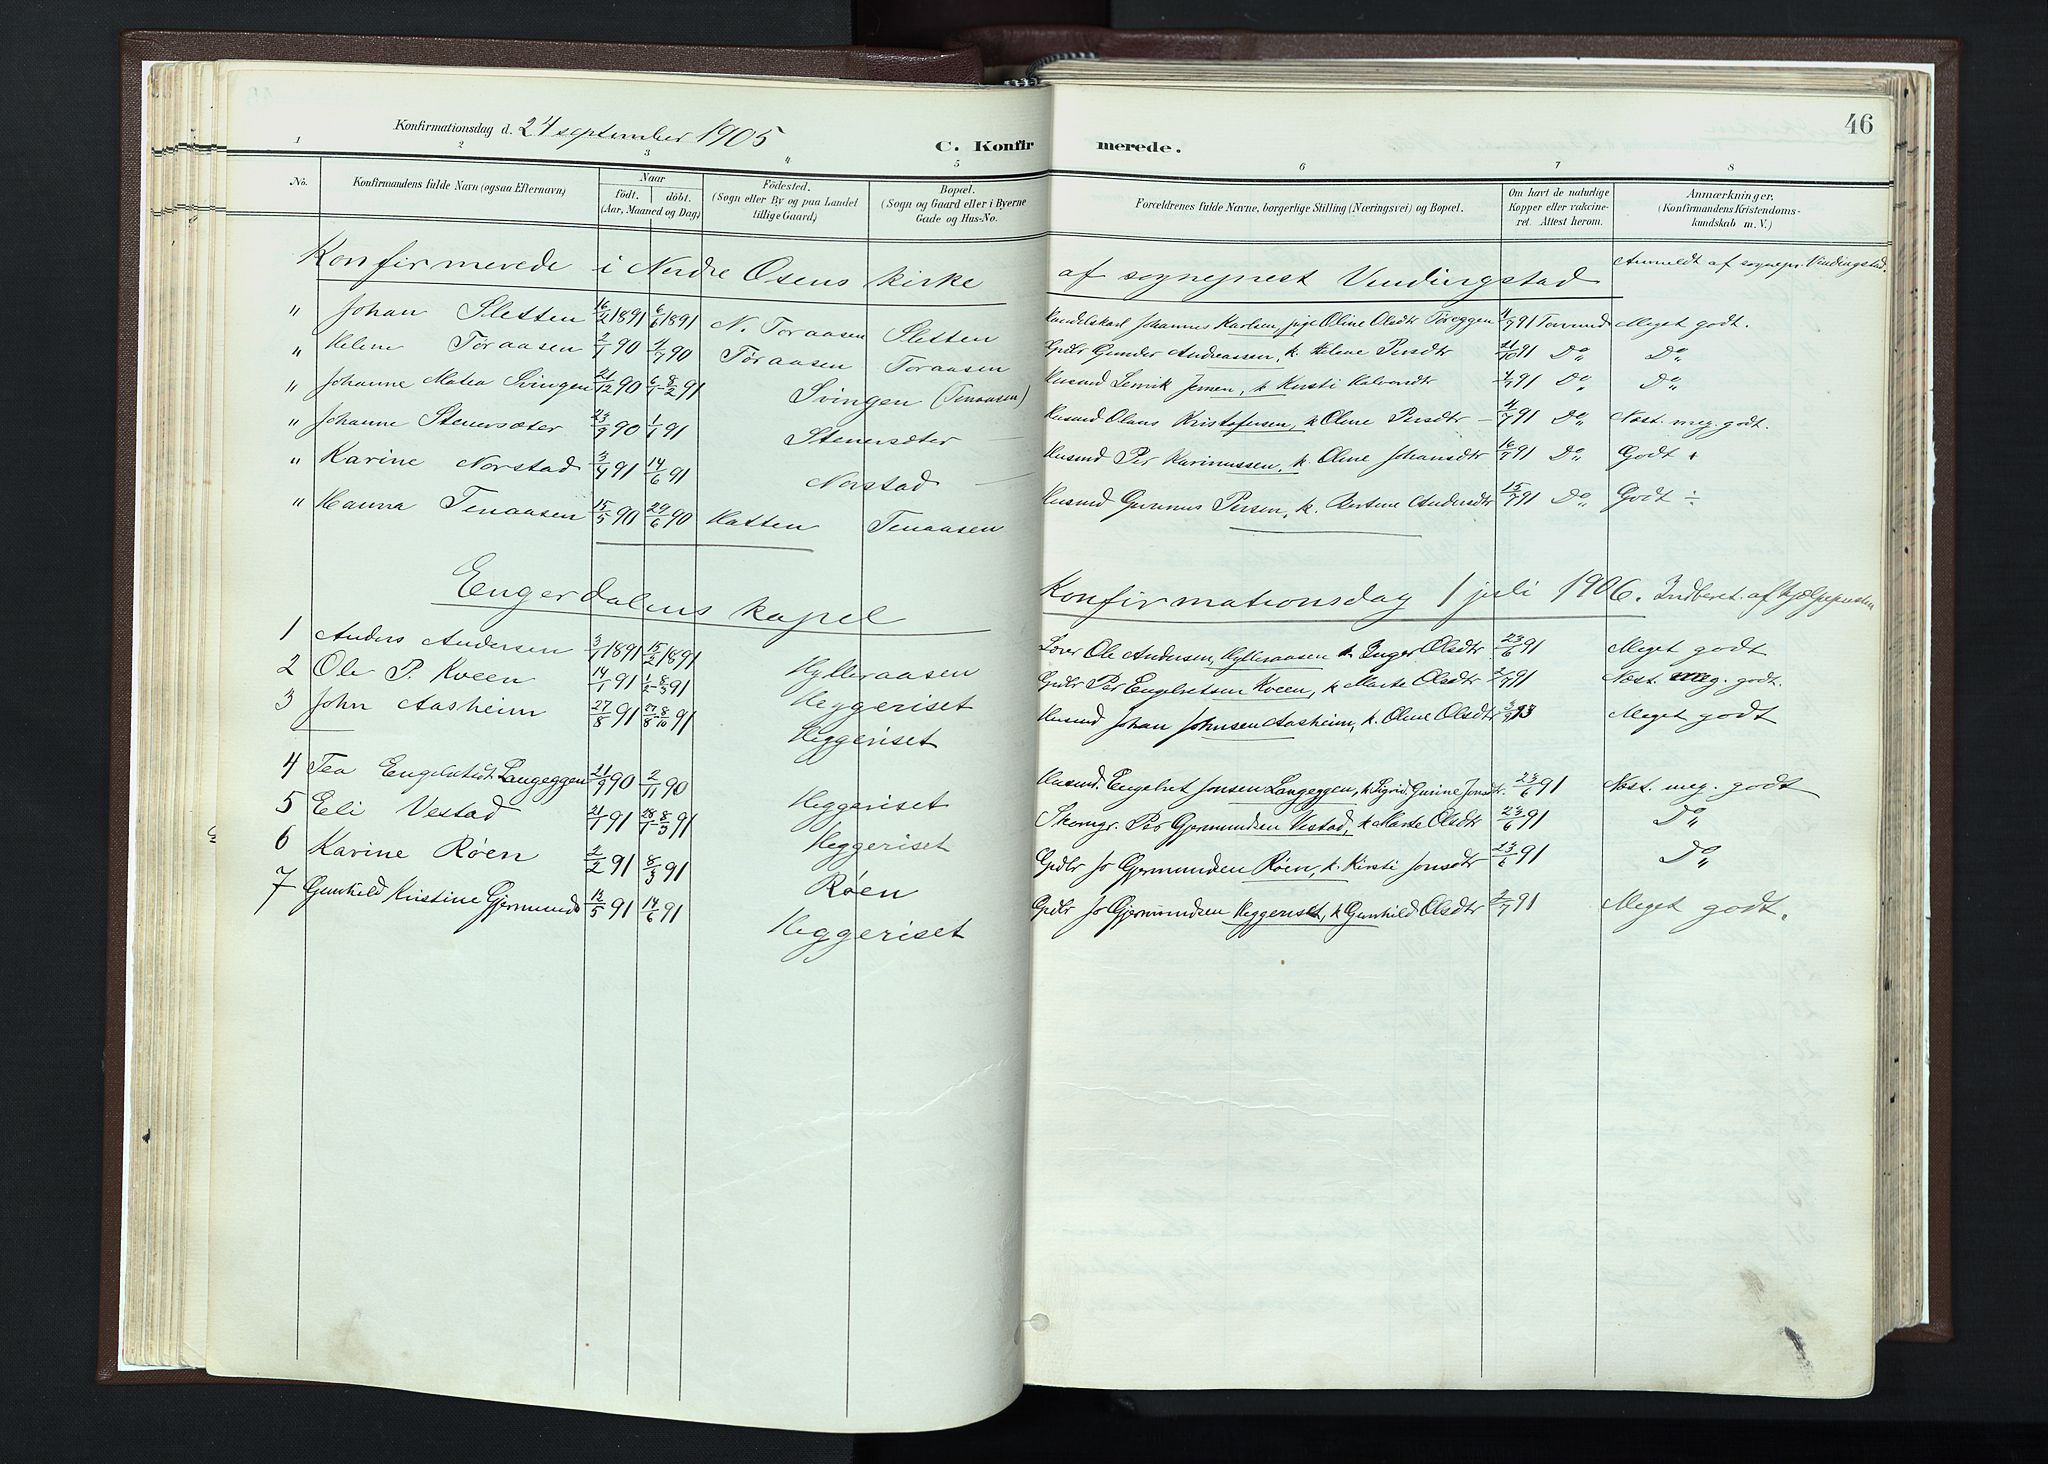 46
Konfirmationsdag d. 24 september 1905
C. Konfirmerede.
1 2 3 4 5 6 7 8
No. Konfirmandens fulde Navn (ogsaa Efternavn) Naar født. døbt. (Aar, Maaned og Dag) Fødested. (Sogn eller By og paa Landet tillige Gaard) Bopæl. (Sogn og Gaard eller i Byerne Gade og Hus-No. Forældrenes fulde Navne, borgerlige Stilling (Næringsvei) og Bopæl. Om havt de naturlige Kopper eller vakcineret. Attest herom. Anmærkninger. (Konfirmandens Kristendomskundskab m. V.)
Konfirmerede i Nordre Osens kirke af sogneprest Vendingstad Anmeldt af sognepr. Vendingstad.
" Johan Sletten 16/2 1891 6/6 1891 N. Toraasen Sletten Johannes Karlsen, pige Oline Olsdtr Tøreggen 4/7 91 Meget godt.
" Helene Tøraasen 2/1 90 4/7 90 Tøraasen Toraasen Gbr Gunder Andreassen, k. Helene Persdtr 21/10 91 Do Do
" Johanne Matea Svingen 21/12 90 6/1 - 8/2 91 Svingen (Tenaasen) Husmd Jensen, k Kirsti Halvordtr 4/7 91 Do Do
" Johanne Stenersæter 23/9 90 1/1 91 Stenersæter Husmd Olaus Kristofersen, k Oline Persdtr 4/7 91 Do Næst. meg. godt.
" Karine Norstad 3/4 91 14/6 91 Norstad Husmd Per Karinussen, k. Oline Johansdtr 16/7 91 Do Godt +
" Hanna Tenaasen 15/5 90 29/6 90 Hatten Tenaasen Husmd Gunnus Persen, k. Bertine Andersdtr 15/7 91 Do Godt ÷
Engerdalens kapel Konfirmationsdag 1 juli 1906. Indberet. af hjælpepresten
1 Anders Andersen 3/1 1891 15/2 1891 Hylleraasen Lærer Ole Andersen, Hylleraasen k. Inger Olsdtr 23/6 91 Meget godt
2 Ole P. Kveen 14/1 91 1/2 - 8/3 91 Heggeriset Gbr Per Engebretsen Kveen, k Marte Olsdtr 2/7 91 Næst. meg. godt.
3 John Aasheim 27/8 91 27/8 - 8/10 91 Heggeriset Husmd Johan Johnsen Aasheim, k. Oline Olsdtr Meget godt
4 Tea Engebretsdt. Langeggen 21/9 90 2/11 90 Heggeriset Husmd. Engebret Jonsen Langeggen, k Sigrid Gurine Jonsdtr. 23/6 91 Næst. meg. godt
5 Eli Vestad 21/1 91 28/1 - 8/3 91 Heggeriset Skomgr. Per Gjermundsen Vestad, k Marte Olsdtr 23/6 91 Do
6 Karine Røen 2/2 91 8/3 91 Røen Gbr Jo Gjermundsen Røen, k. Kirsti Jonsdtr 23/6 91 Do
7 Gunhild Kristine Gjermundsd 12/5 91 14/6 91 Heggeriset Gbr Jo Gjermundsen Heggeriset, k Gunhild Olsdtr 2/7 91 Meget godt.